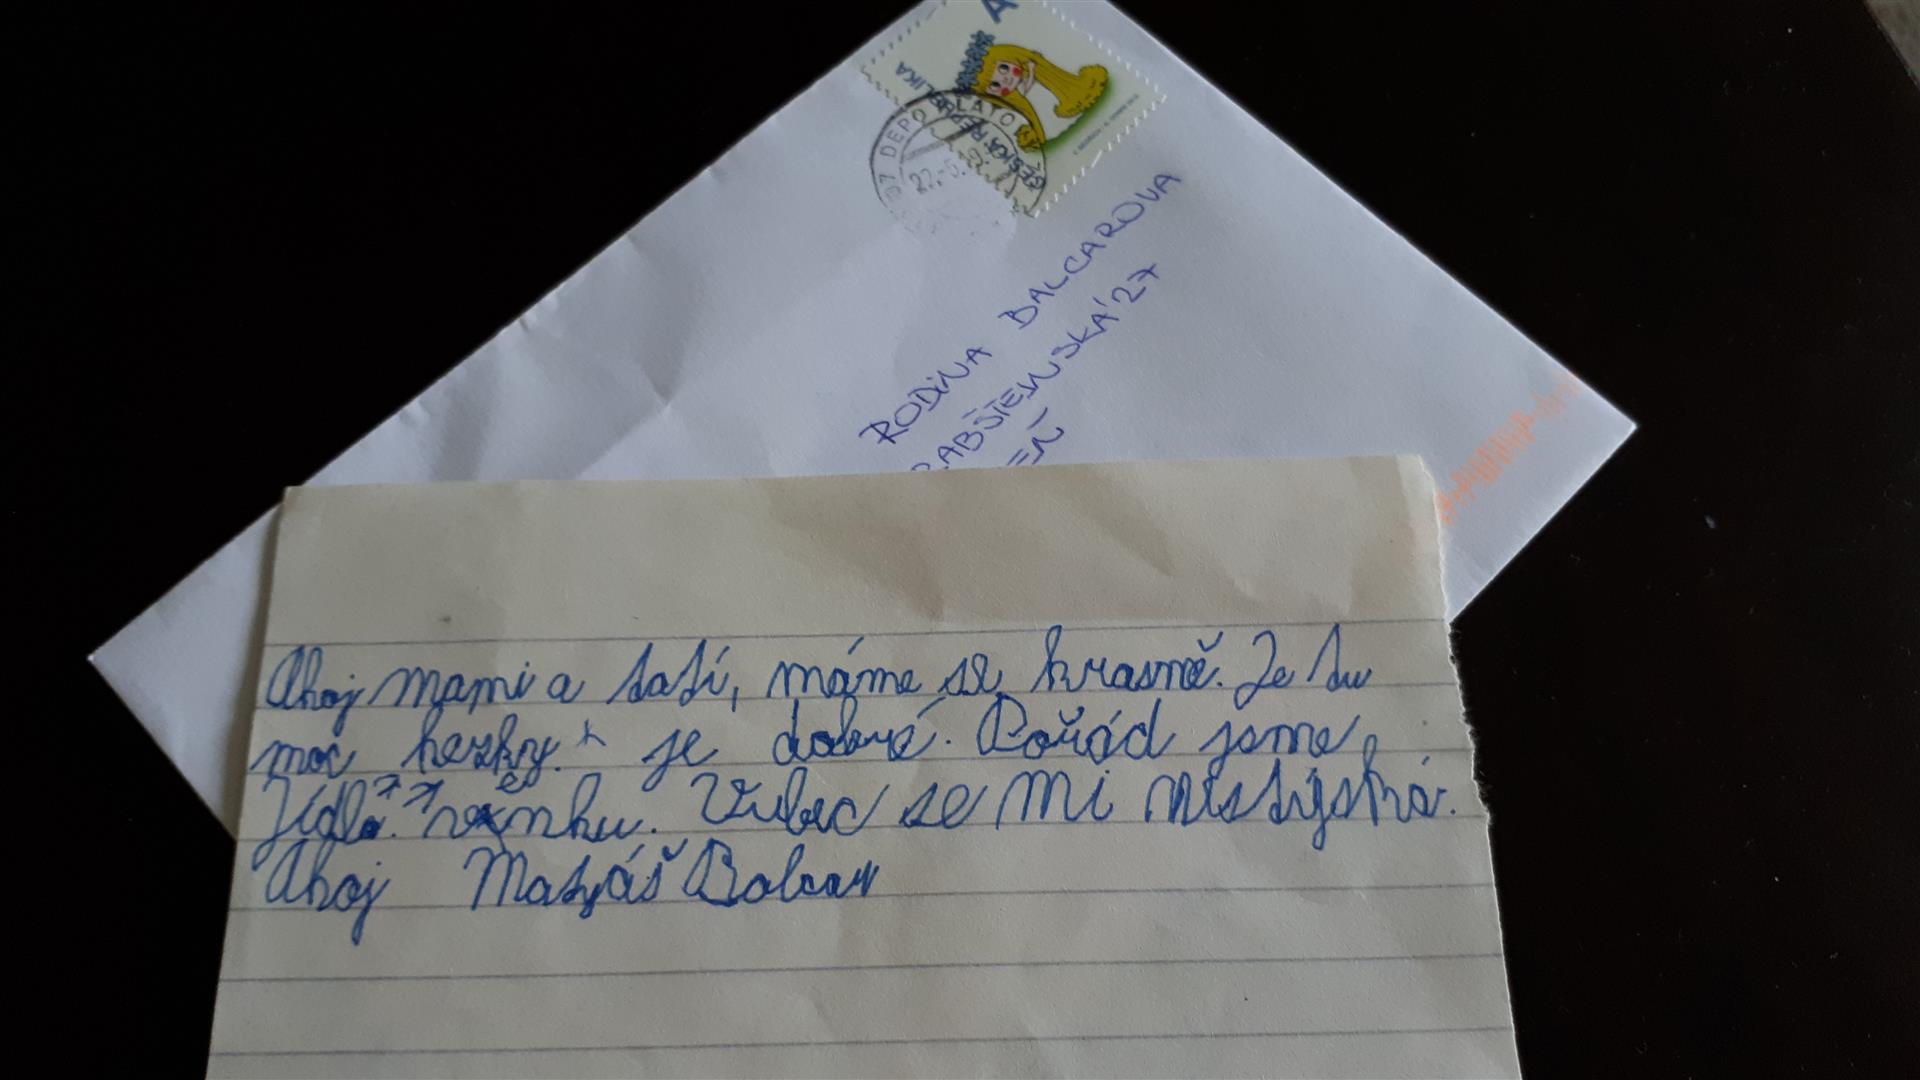 A
ČESKÁ REPUBLIKA
DEPO
22.-6.
RODINA BALCAROVA
RABŠTEJNSKÁ 27
EŇ
Ahoj mami a tatí, máme se krasně. Je tu
moc hezky. je dobré. Pořád jsme
Jídlo. venku. Vubec se mi nestýská.
Ahoj Matyáš Balcar